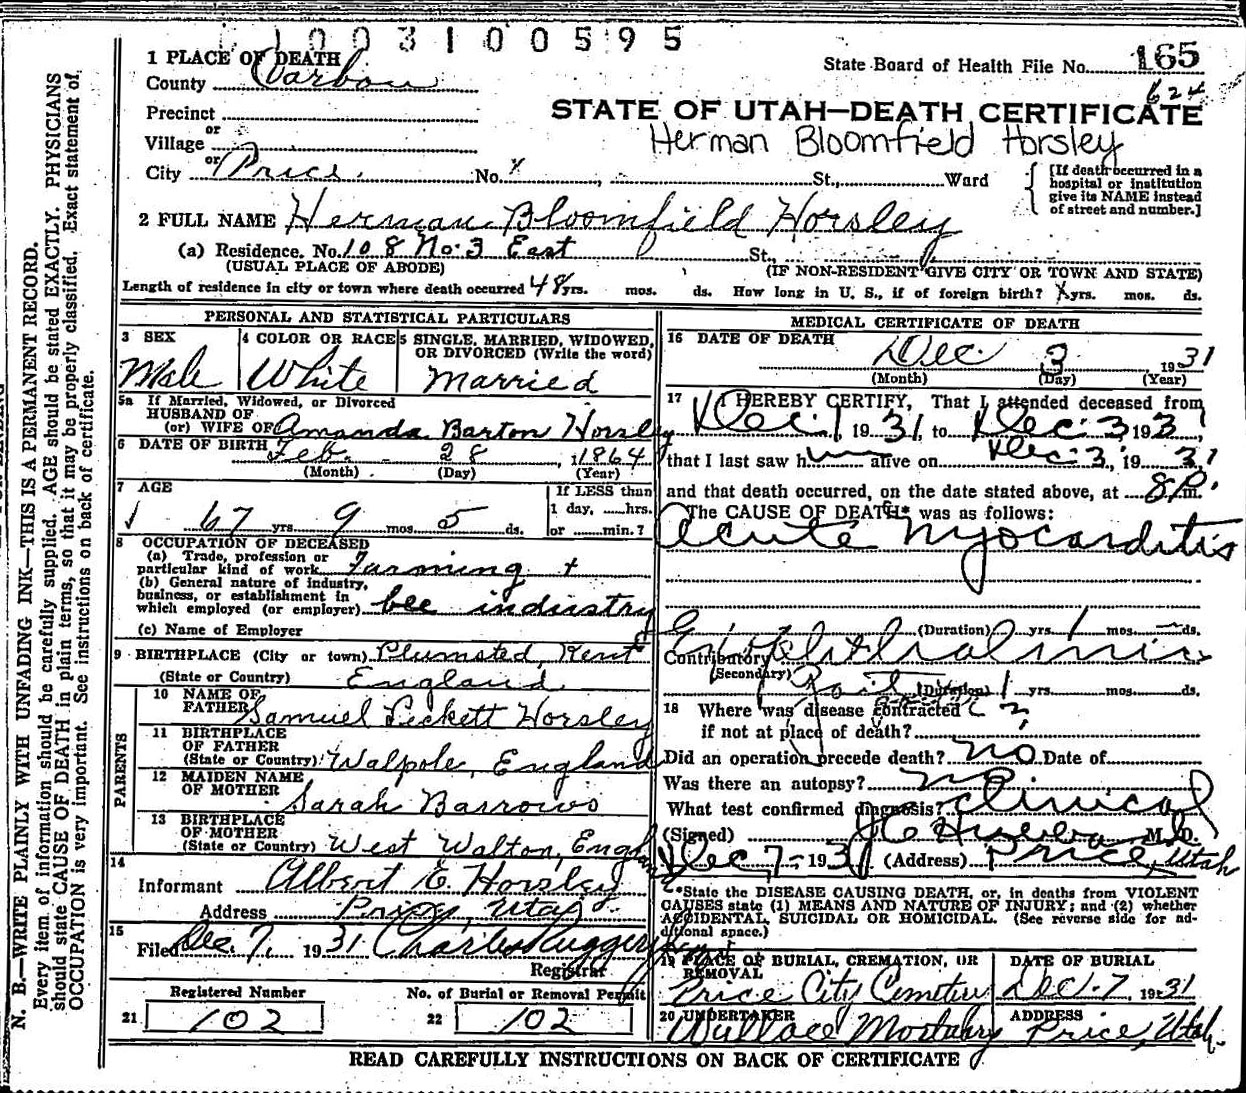 1003100595
1 PLACE OF DEATH
County Carbon
State Board of Health File No. 165
624
Precinct
STATE OF UTAH—DEATH CERTIFICATE
or
Village
Herman Bloomfield Horsley
or
City Price. No. x St., Ward
[If death occurred in a hospital or institution give its NAME instead of street and number.]
2 FULL NAME Herman Bloomfield Horsley
(a) Residence. No. 108 No. 3 East St.,
(USUAL PLACE OF ABODE) (IF NON-RESIDENT GIVE CITY OR TOWN AND STATE)
Length of residence in city or town where death occurred 48 yrs. mos. ds. How long in U. S., if of foreign birth? x yrs. mos. ds.
PERSONAL AND STATISTICAL PARTICULARS
3 SEX
Male
4 COLOR OR RACE
White
5 SINGLE, MARRIED, WIDOWED, OR DIVORCED (Write the word)
Married
5a If Married, Widowed, or Divorced
HUSBAND OF
(or) WIFE OF Amanda Barton Horsley
6 DATE OF BIRTH Feb. 28, 1864
(Month) (Day) (Year)
7 AGE
67 yrs. 9 mos. 5 ds.
If LESS than
1 day, ......hrs.
or ......min.?
8 OCCUPATION OF DECEASED
(a) Trade, profession or
particular kind of work Farming +
(b) General nature of industry,
business, or establishment in
which employed (or employer) bee industry
(c) Name of Employer
9 BIRTHPLACE (City or town) Plumsted, Kent
(State or Country) England
PARENTS
10 NAME OF
FATHER Samuel Leckett Horsley
11 BIRTHPLACE
OF FATHER
(State or Country) Walpole, England
12 MAIDEN NAME
OF MOTHER Sarah Barrows
13 BIRTHPLACE
OF MOTHER
(State or Country) West Walton, England
14
Informant Albert E. Horsley
Address Price, Utah
15
Filed Dec. 7, 1931 Charles Ruggeri
Registrar
Registered Number No. of Burial or Removal Permit
21 102 22 102
MEDICAL CERTIFICATE OF DEATH
16 DATE OF DEATH
Dec 3 1931
(Month) (Day) (Year)
17 I HEREBY CERTIFY, That I attended deceased from
Dec. 1, 1931, to Dec. 3, 193 1,
that I last saw h im alive on Dec. 3, 1931
and that death occurred, on the date stated above, at 8 P.m.
The CAUSE OF DEATH* was as follows:
Acute Myocarditis
(Duration) yrs. 1 mos. — ds.
Contributory Exophthalmic
(Secondary) Goiter (Duration) 1 yrs. mos. ds.
18 Where was disease contracted
if not at place of death? ?
Did an operation precede death? no Date of
Was there an autopsy? no
What test confirmed diagnosis? Clinical
(Signed) M. D.
Dec 7- 1931 (Address) Price, Utah
*State the DISEASE CAUSING DEATH, or, in deaths from VIOLENT
CAUSES state (1) MEANS AND NATURE OF INJURY; and (2) whether
ACCIDENTAL, SUICIDAL OR HOMICIDAL. (See reverse side for ad-
ditional space.)
19 PLACE OF BURIAL, CREMATION, OR
REMOVAL
Price City Cemetery
DATE OF BURIAL
Dec. 7, 1931
20 UNDERTAKER
Wallace Mortuary
ADDRESS
Price, Utah.
READ CAREFULLY INSTRUCTIONS ON BACK OF CERTIFICATE
N. B.—WRITE PLAINLY WITH UNFADING INK—THIS IS A PERMANENT RECORD.
Every item of information should be carefully supplied. AGE should be stated EXACTLY. PHYSICIANS
should state CAUSE OF DEATH in plain terms, so that it may be properly classified. Exact statement of
OCCUPATION is very important. See instructions on back of certificate.